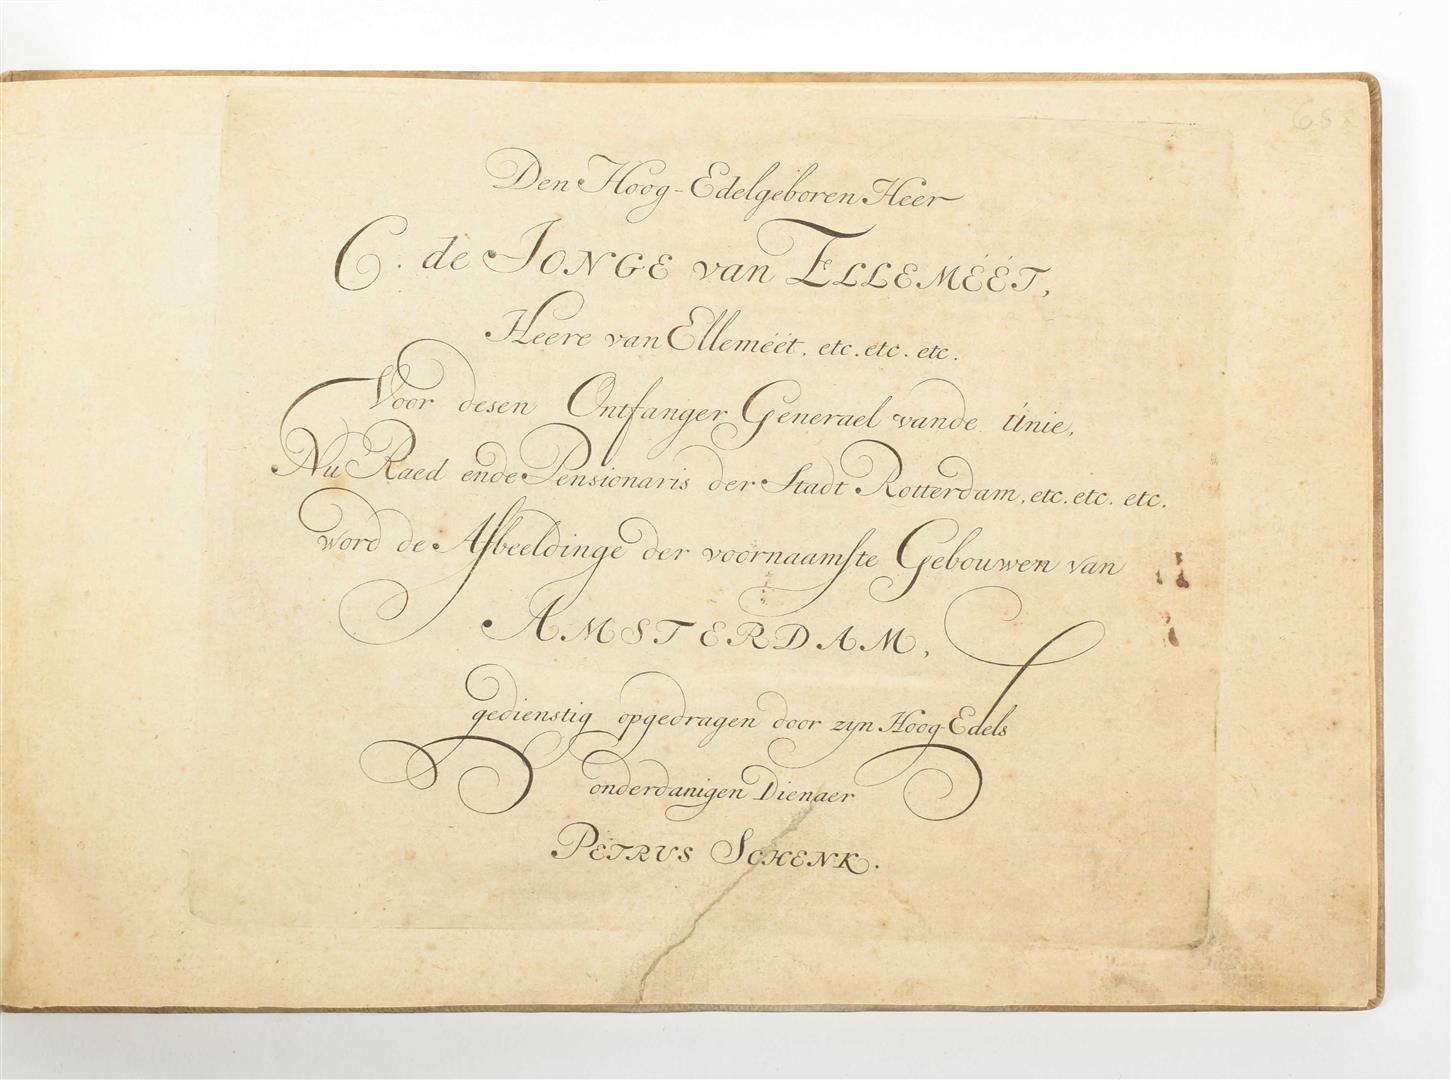 Den Hoog-Edelgeboren Heer
C. de JONGE van ELLEMÉÉT,
Heere van Elleméét, etc. etc. etc.
Voor desen Ontfanger Generael vande Unie,
Nu Raed ende Pensionaris der Stadt Rotterdam, etc. etc. etc.
word de Afbeeldinge der voornaamste Gebouwen van
AMSTERDAM,
gedienstig opgedragen door zyn Hoog-Edels
onderdanigen Dienaer
PETRUS SCHENK.